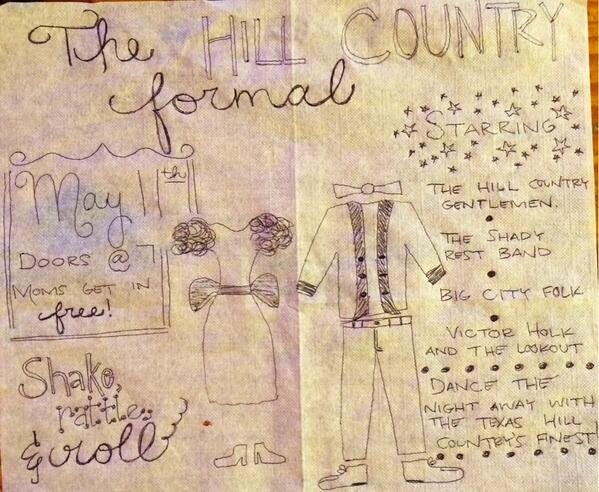 The HILL COUNTRY
formal
STARRING
May 11th
DOORS @ 7
MOMS GET IN
free!
Shake,
rattle
& roll
THE HILL COUNTRY
GENTLEMEN.
THE SHADY
REST BAND
BIG CITY FOLK
VICTOR HOLK
AND THE LOOKOUT
DANCE THE
NIGHT AWAY WITH
THE TEXAS HILL
COUNTRY'S FINEST!